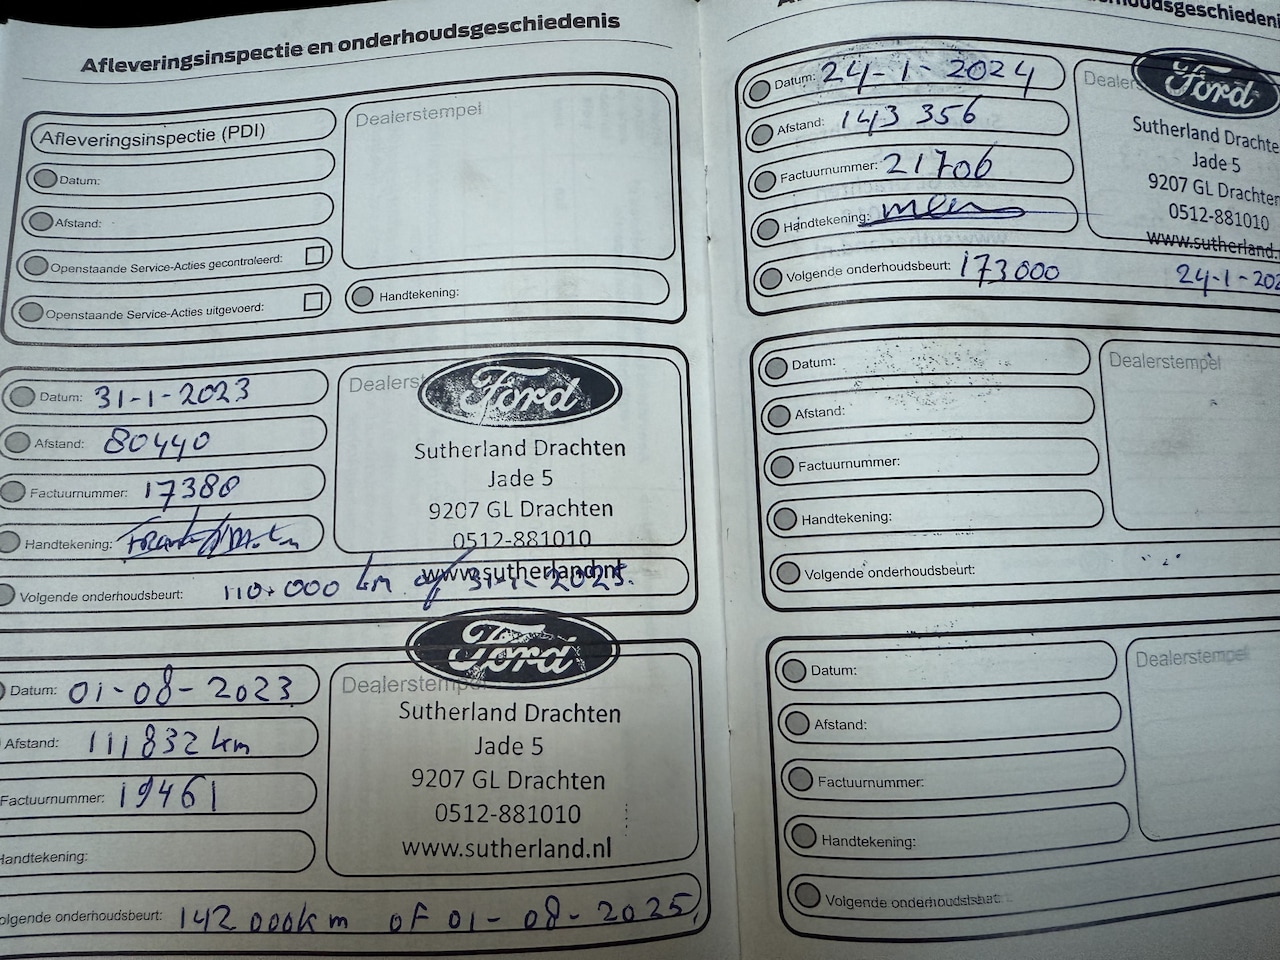 Afleveringsinspectie en onderhoudsgeschiedenis
Afleveringsinspectie (PDI)
Datum:
Afstand:
Openstaande Service-Acties gecontroleerd:
Openstaande Service-Acties uitgevoerd:
Dealerstempel
Handtekening:
Datum: 31-1-2023
Afstand: 80440
Factuurnummer: 17380
Handtekening:
Volgende onderhoudsbeurt: 110.000 km of 31-1-2025.
Dealerst
Ford
Sutherland Drachten
Jade 5
9207 GL Drachten
0512-881010
www.sutherland.nl
Datum: 01-08-2023
Afstand: 111832 km
Factuurnummer: 19461
Handtekening:
olgende onderhoudsbeurt: 142 000km of 01-08-2025.
Ford
Dealerstempel
Sutherland Drachten
Jade 5
9207 GL Drachten
0512-881010
www.sutherland.nl
Datum: 24-1-2024
Afstand: 143 356
Factuurnummer: 21706
Handtekening:
Volgende onderhoudsbeurt: 173000 24-1-202
Dealers
Ford
Sutherland Drachte
Jade 5
9207 GL Drachten
0512-881010
www.sutherland.
Datum:
Afstand:
Factuurnummer:
Handtekening:
Volgende onderhoudsbeurt:
Dealerstempel
Datum:
Afstand:
Factuurnummer:
Handtekening:
Volgende
Dealerstempel